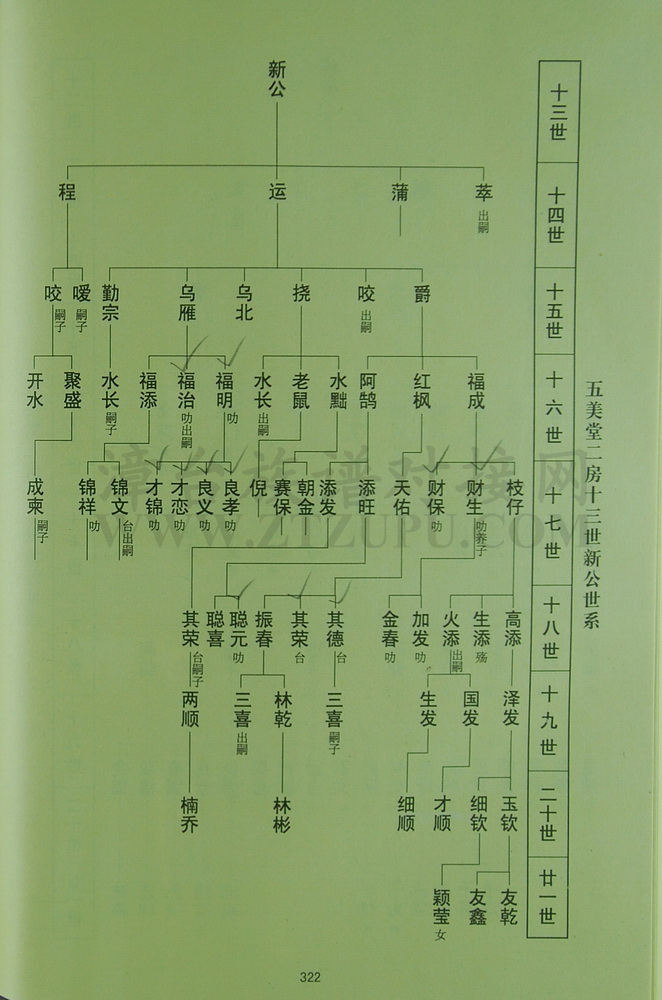 五美堂二房十三世新公世系
十三世
新公
十四世
萃 出嗣
蒲
运
程
十五世
爵
咬 出嗣
挠
乌北
乌雁
勤宗
嗳 嗣子
咬 嗣子
十六世
福成
红枫
阿鹄
水黜
老鼠
水长 出嗣
福明 叻
福治 叻出嗣
福添
水长 嗣子
聚盛
开水
十七世
枝仔
财生 叻养子
财保 叻
天佑
添旺
添发
朝金
赛保
倪
良孝 叻
良义 叻
才恋 叻
才锦 叻
锦文 台出嗣
锦祥 叻
成柬 嗣子
十八世
高添
生添 殇
火添 出嗣
加发 叻
金春 叻
其德 台
其荣 台
振春
聪元 叻
聪喜
其荣 台嗣子
十九世
泽发
国发
生发
三喜 嗣子
林乾
三喜 出嗣
两顺
二十世
玉钦
细钦
才顺
细顺
林彬
楠乔
廿一世
友乾
友鑫
颖莹 女
漳台族谱对接网
WWW.ZTZUPU.COM
322